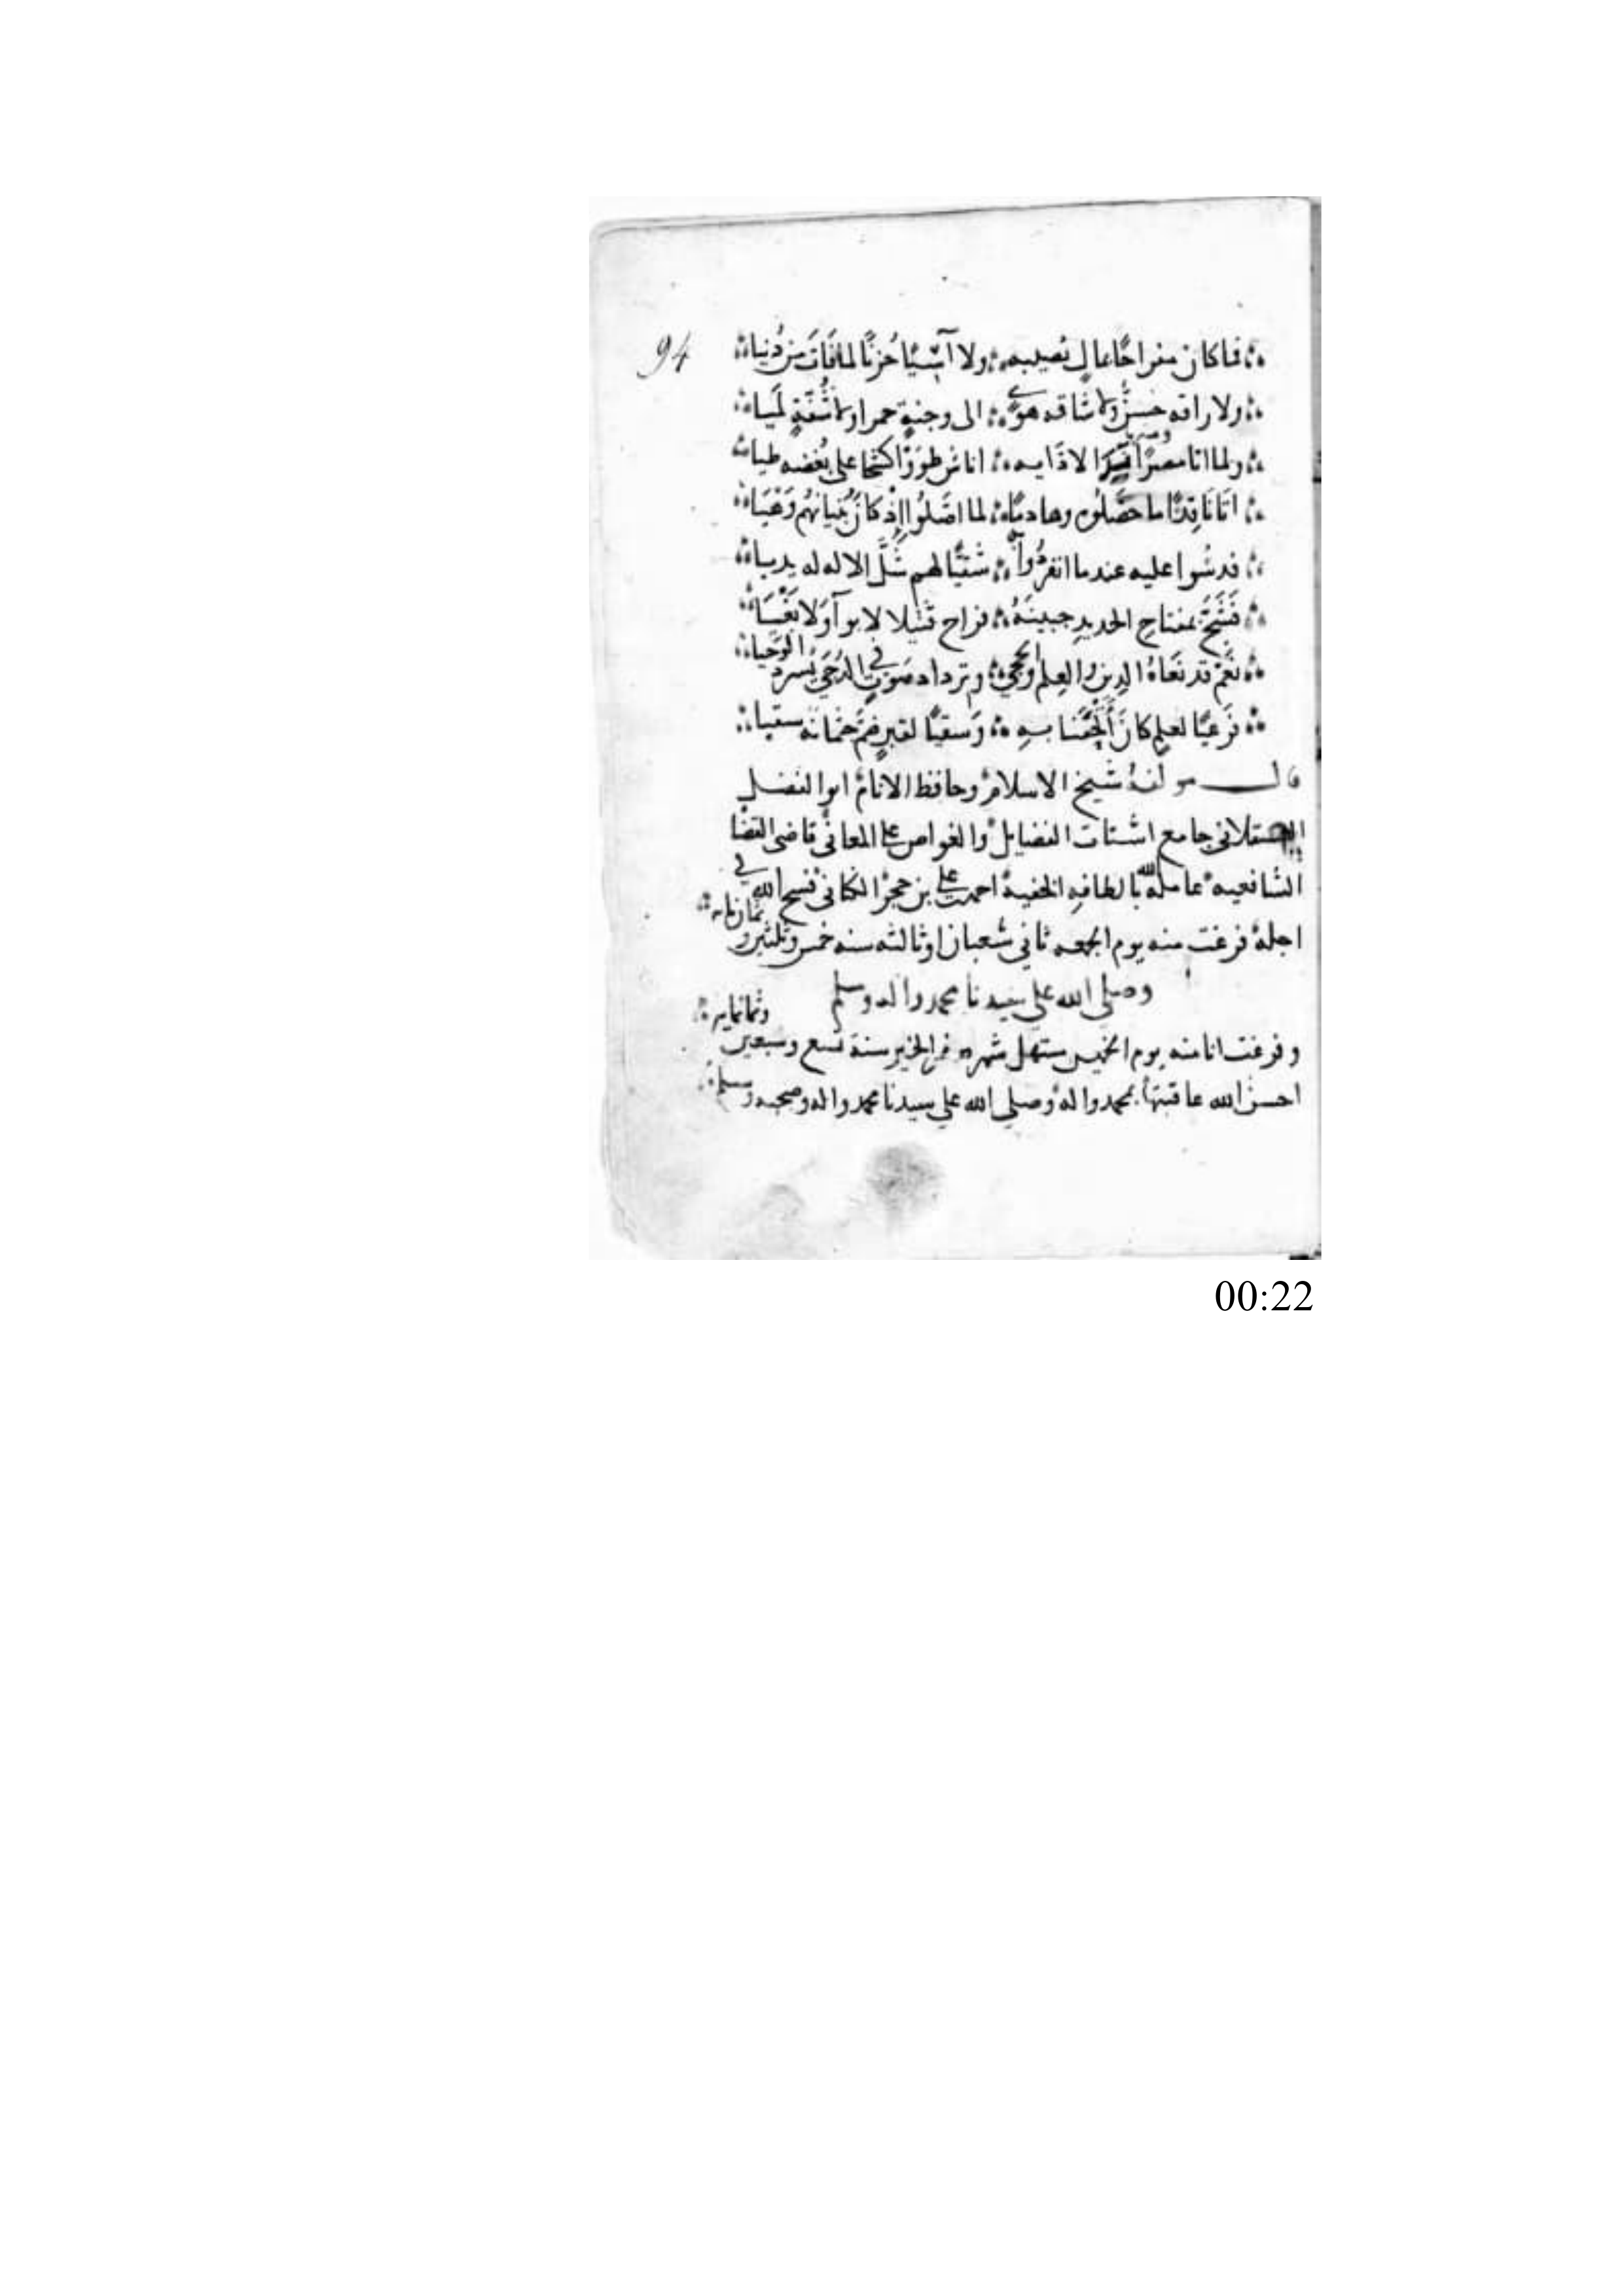 94
فما كان مفراحًا بمال يصيبه ولا آسيًا حُزنًا لما فَاتَ من دُنيا
ولا راقه حسنٌ ولا شاقه هوى الى وجنةٍ حمرا ولا شَفَةٍ لَميا
ولما اتا مصرًا الاذايه اناس طَوَوْا كشحا على بُغضه طيا
اتَانَا قِدًا ما حصَّلوه وهادمًا لما اصّلوا إذ كان بنيانهم وَهْيَا
فدسُوا عليه عندما انفردُوا به شقيًا لهم شَلَّ الاله له يديا
فشَجَّ بمفتاح الحديدِ جبينَهُ فراح قتيلا لا بوآ وَلا نَعْيَا
نعَمْ قد نعَاهُ الدين والعِلم والحجى وترداد صوتٍ في الدُجَى يسرد الوحيا
فرَعيًا لعلمٍ كان أَتْحَفَنا بهِ وَسقيًا لقبرٍ ضَمَّ جثمانه سقيا
قال مولفهُ شيخ الاسلام وحافظ الانام ابو الفضل
العسقلاني جامع اشتات الفضايل والغواص على المعاني قاضي القضا
الشافعيه عامله الله بالطافه الخفيه احمد بن علي بن حجر الكناني فسح الله في
اجله فرغت منه يوم الجمعه ثاني شعبان او ثالثه سنه خمس وثلثين و
ثمانمايه
وصلى الله على سيدنا محمد واله وسلم
وفرغت انا منه يوم الخميس مستهل شهر صفر الخير سنة تسع وسبعين
وثمانمايه
احسن الله عاقبتها بمحمد واله وصلى الله على سيدنا محمد واله وصحبه وسلم
00:22